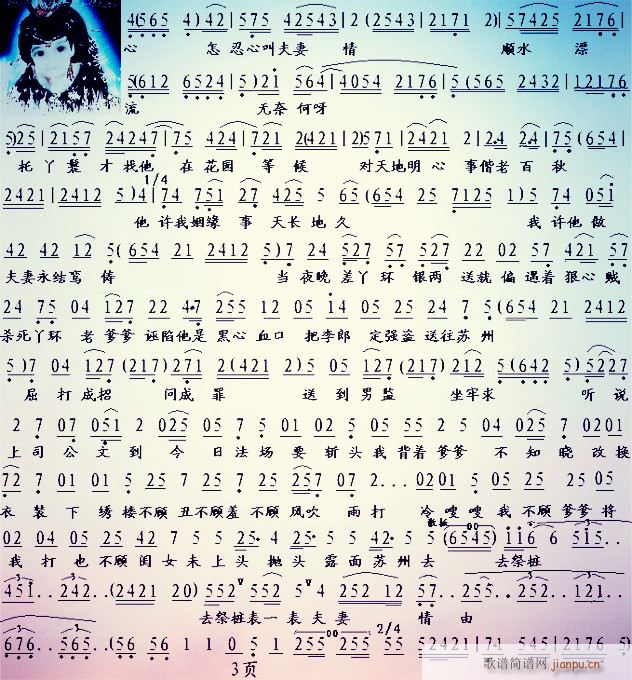 4(565 4)42 | 575 4(42543) | 2 (2543421) | 2171 2) | 57425 2176 |
心 怎 忍心叫夫妻 情 顺水 漂
5(612 6524 | 5)21 564 | 4054 2176 | 5(565 2432 | 12176
流 无奈 何呀
5)25 | 2157 24247 | 75 424 | 721 (2421) | 2·2 2·4 | 75 (654 |
托 丫 鬟 才 找他 在 花园 等 候 对天地明 心 事偕老 百 秋
2421 | 2412 5)4 | 1/4 74 751 27 425 5 65(654 25 7125 5) 74 051
他 许我 姻缘 事 天长 地 久 我 许他 做
42 42 12 5(654 21 2412 5)7 24 527 57 527 22 02 57 421 57
夫妻永结鸾 俦 当 夜晚 差丫 环 银两 送就 偏 遇着 狠心 贼
24 75 04 127 22 47 255 12 05 14 05 25 24 7 5(654 21 2412
杀死丫环 老 爹爹 诬陷他是 黑心 血口 把李郎 定强盗 送往苏 州
5)7 04 127 (217) 271 2(421) 2 05 127 (217) 212 5(642 5) 527
屈 打 成招 问成 罪 送 到 男监 坐牢求 听 说
2 7 07 051 2 025 05 7 5 01 02 05 7 2 55 2 5 04 025 7 0201
上 司 公 文 到 今 日法 场 要 斩头 我 背着 爹爹 不 知 晓 改换
72 7 01 01 5 25 7 25 7 25 257 07 2... 0201 5 05 25 05
衣 装 下 绣楼 不顾 丑不顾羞 不顾 风吹 雨 打 冷 嗖嗖 我 不顾 爹爹 将
02 04 05 24 7 025 5 25 5 5 42 5 5 (6545) 116 6 515··
我 打 也 不顾 闺 女 未 上 头 抛头 露 面 苏 州 去 散板 去祭桩
451·· 242·· (2421 20) 552 552 5 452 12 57·· 121·· 5··
去祭桩表一 表 夫 妻 情 由
676·· 565·· (56 56 1 1 0 5 1 255 255 55 2/4 52421 | 71 545 | 2176 5)
3页
歌谱简谱网
jianpu.cn